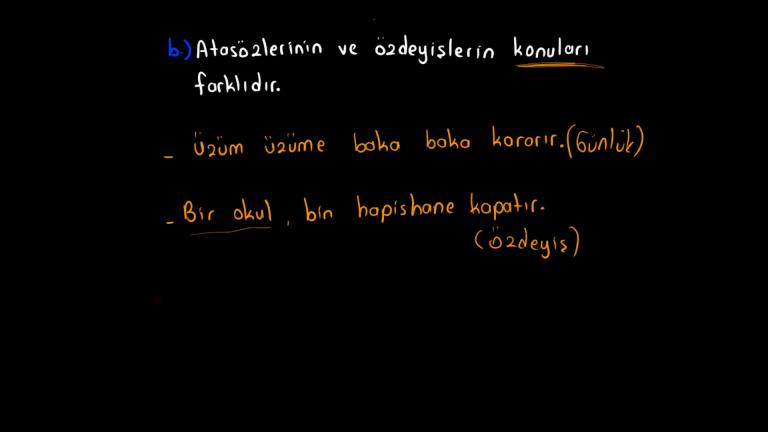 b.) Atasözlerinin ve özdeyişlerin konuları
farklıdır.
- Üzüm üzüme baka baka kararır. (Günlük)
- Bir okul, bin hapishane kapatır.
(Özdeyiş)